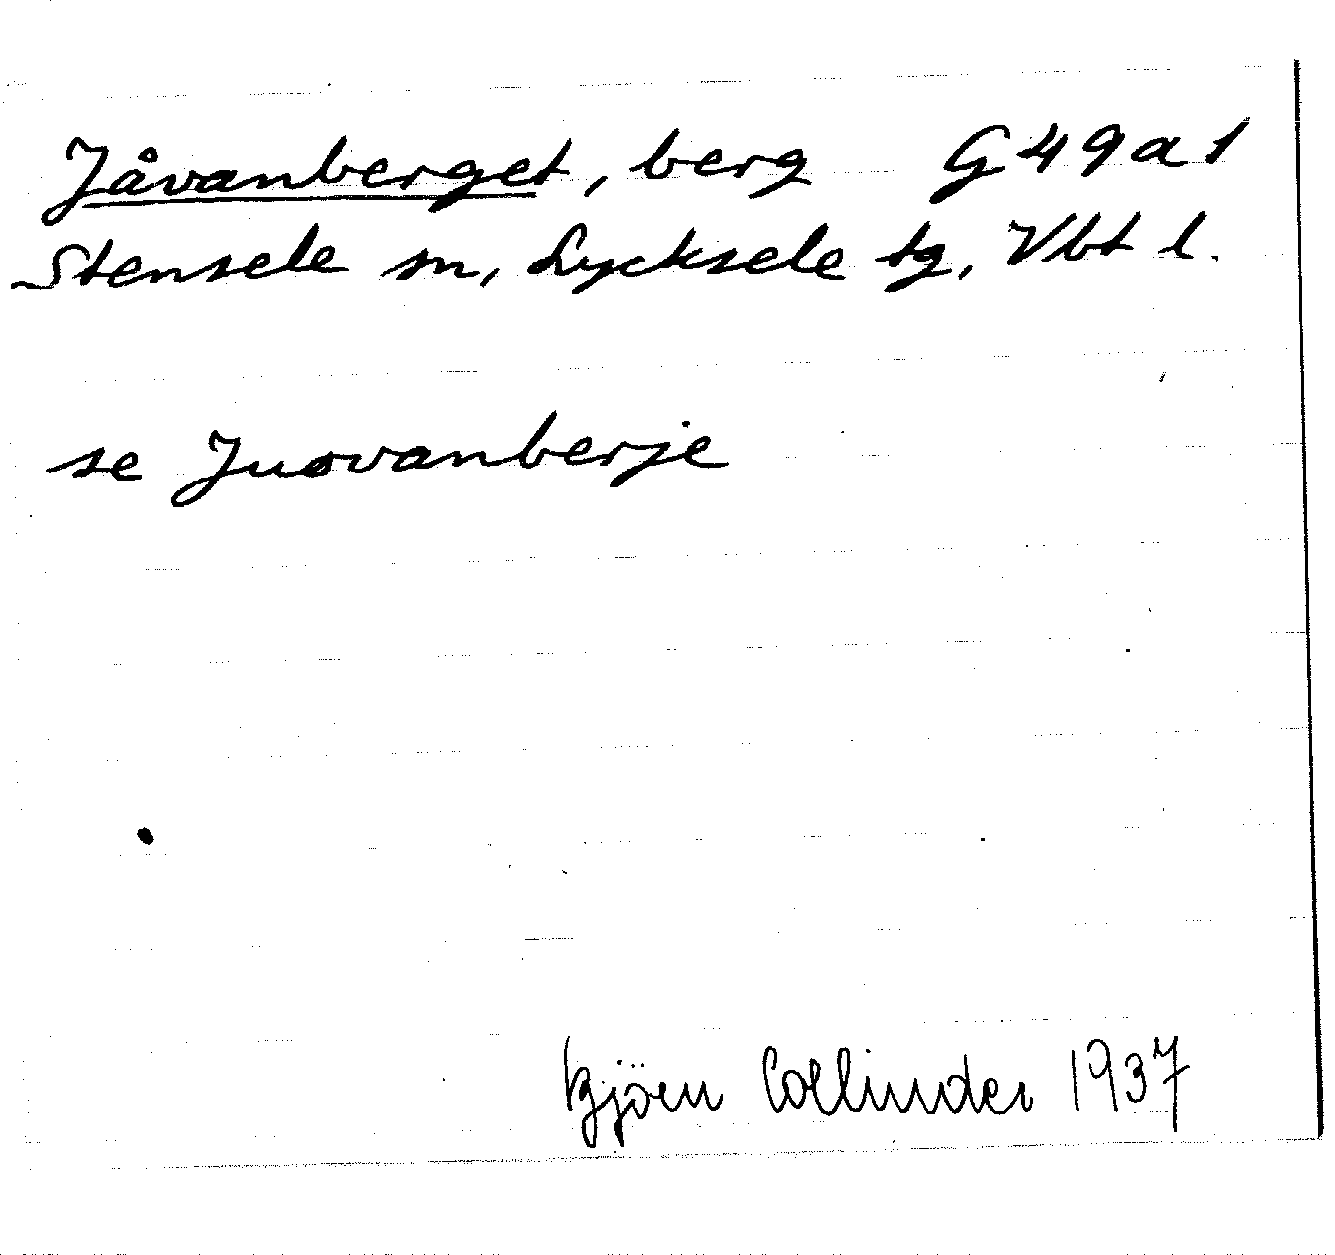 Jåvanberget, berg G49a1
Stensele sn, Lycksele tg, Vbt l.
se Juovanberje
Björn Collinder 1937